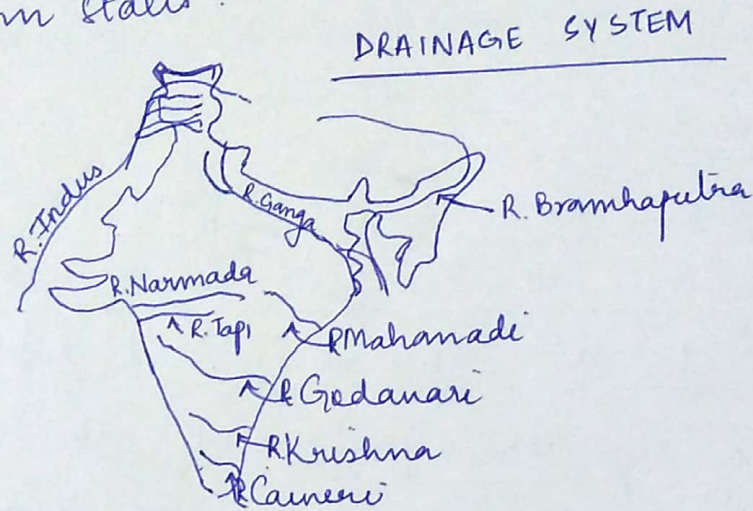 m states.
DRAINAGE SYSTEM
R. Indus
R. Ganga
R. Bramhaputra
R. Narmada
R. Tapi
R Mahanadi
R Godavari
R Krishna
R Cauveri